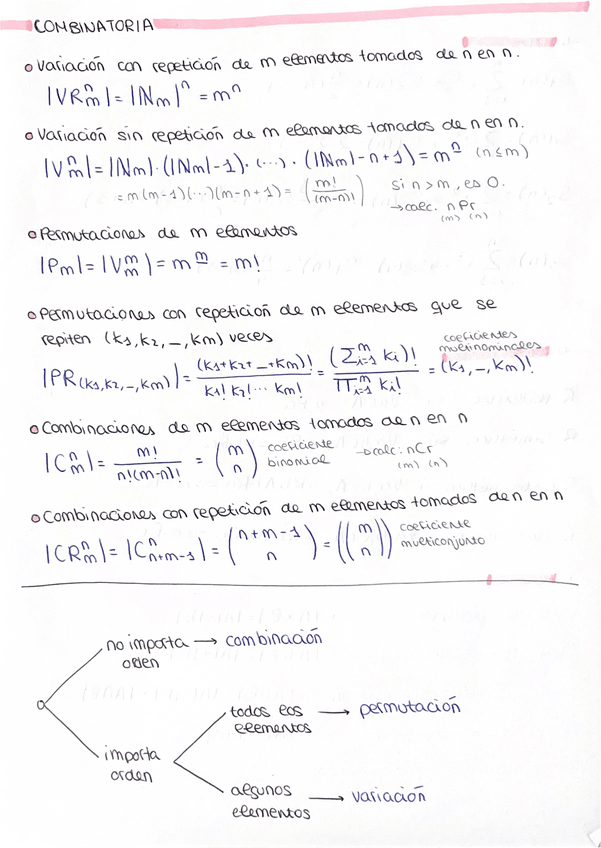 COMBINATORIA
Variación con repetición de m elementos tomados de n en n.
|VRₘⁿ| = |ℕₘ|ⁿ = mⁿ
Variación sin repetición de m elementos tomados de n en n.
|Vₘⁿ| = |ℕₘ|·(|ℕₘ|-1)·(...)·(|ℕₘ|-n+1) = m^n̲ (n≤m)
= m(m-1)(...)(m-n+1) = (m!/(m-n)!) si n>m, es 0.
→ calc. nPr
(m) (n)
Permutaciones de m elementos
|Pₘ| = |Vₘᵐ| = m^m̲ = m!
Permutaciones con repetición de m elementos que se
repiten (k₁, k₂, _, kₘ) veces
coeficientes
multinominales
|PR(k₁,k₂,_,kₘ)| = (k₁+k₂+_+kₘ)!/(k₁! k₂! ... kₘ!) = (∑ᵢ₌₁ᵐ kᵢ)!/(∏ᵢ₌₁ᵐ kᵢ!) = (k₁,_,kₘ)!
Combinaciones de m elementos tomados de n en n
|Cₘⁿ| = m!/(n!(m-n)!) = (m n) coeficiente binomial → calc: nCr
(m) (n)
Combinaciones con repetición de m elementos tomados de n en n
|CRₘⁿ| = |Cₙ₊ₘ₋₁ⁿ| = (n+m-1 n) = ((m n)) coeficiente multiconjunto
no importa → combinación
orden
todos los → permutación
elementos
importa
orden
algunos → variación
elementos